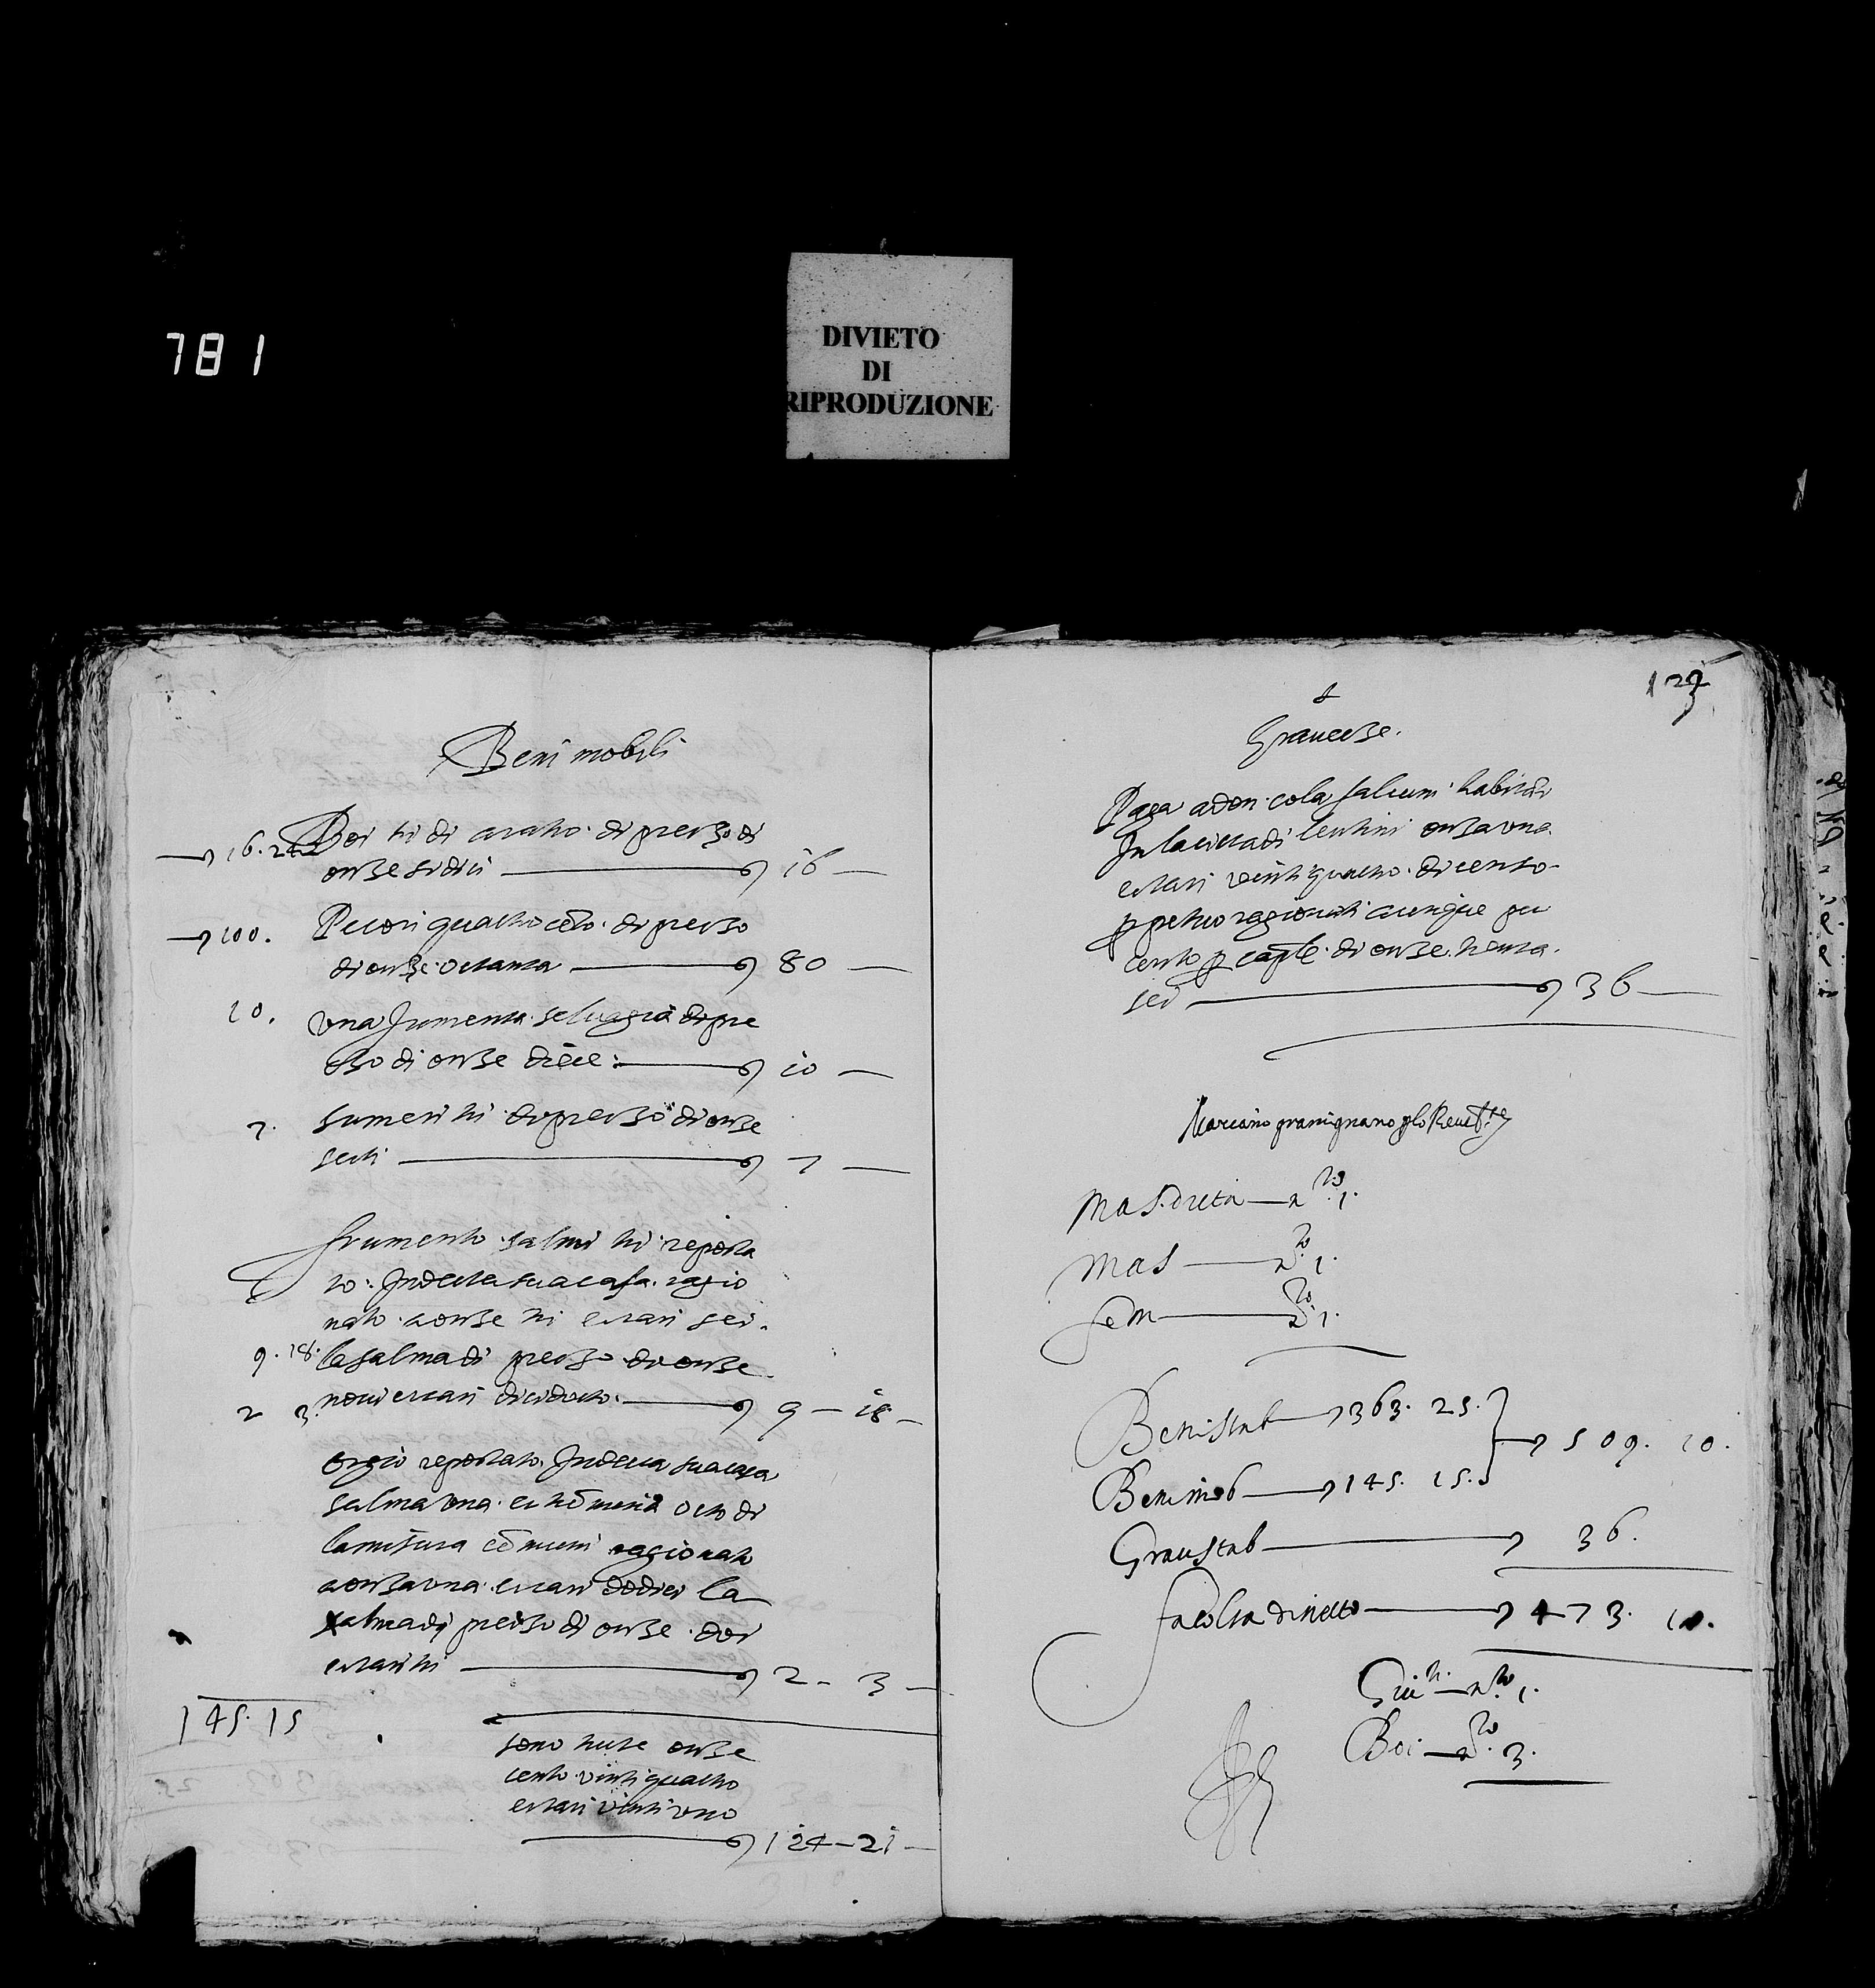 781
DIVIETO
DI
RIPRODUZIONE
Beni mobili
16. 24 Boi tri di aratro di prezo di
onze sidici 16
100. Pecori quattro cento di prezo
di onze octanta 80
10. una Jumenta selvaggia di pre
zo di onze diece: 10
7. sumeri tri di prezo di onze
setti 7
frumento salmi tri reposta
to: In detta sua casa ragio
nato a onze tri e tari sei
9. 18. la salma di prezo di onze
2 3. novi e tari dicidotto 9 — 18
orgio repostato In detta sua casa
salma una et tummina octo di
la misura comuni ragionato
a onza una e tari dodici la
salma di prezo di onze doi
e tari tri 2 - 3
145. 15
sono tutte onze
cento vinti quattro
e tari vinti uno
124 - 21
123
Gravezze.
Paga a don cola salerni habitatri
In la citta di lentini onza una
e tari vinti quattro di censo
perpetuo ragionati a cinque per
cento per capitale di onze trenta
sei 36
Marciano gramignano
Mas. di età n.ro 1.
Mas n.ro 1.
fem n.ro 1.
Beni stab 363. 25.
509. 10.
Beni mob 145. 15.
Grav stab 36.
facolta di netto 473. 10.
n.ro 1.
Boi n.ro 3.